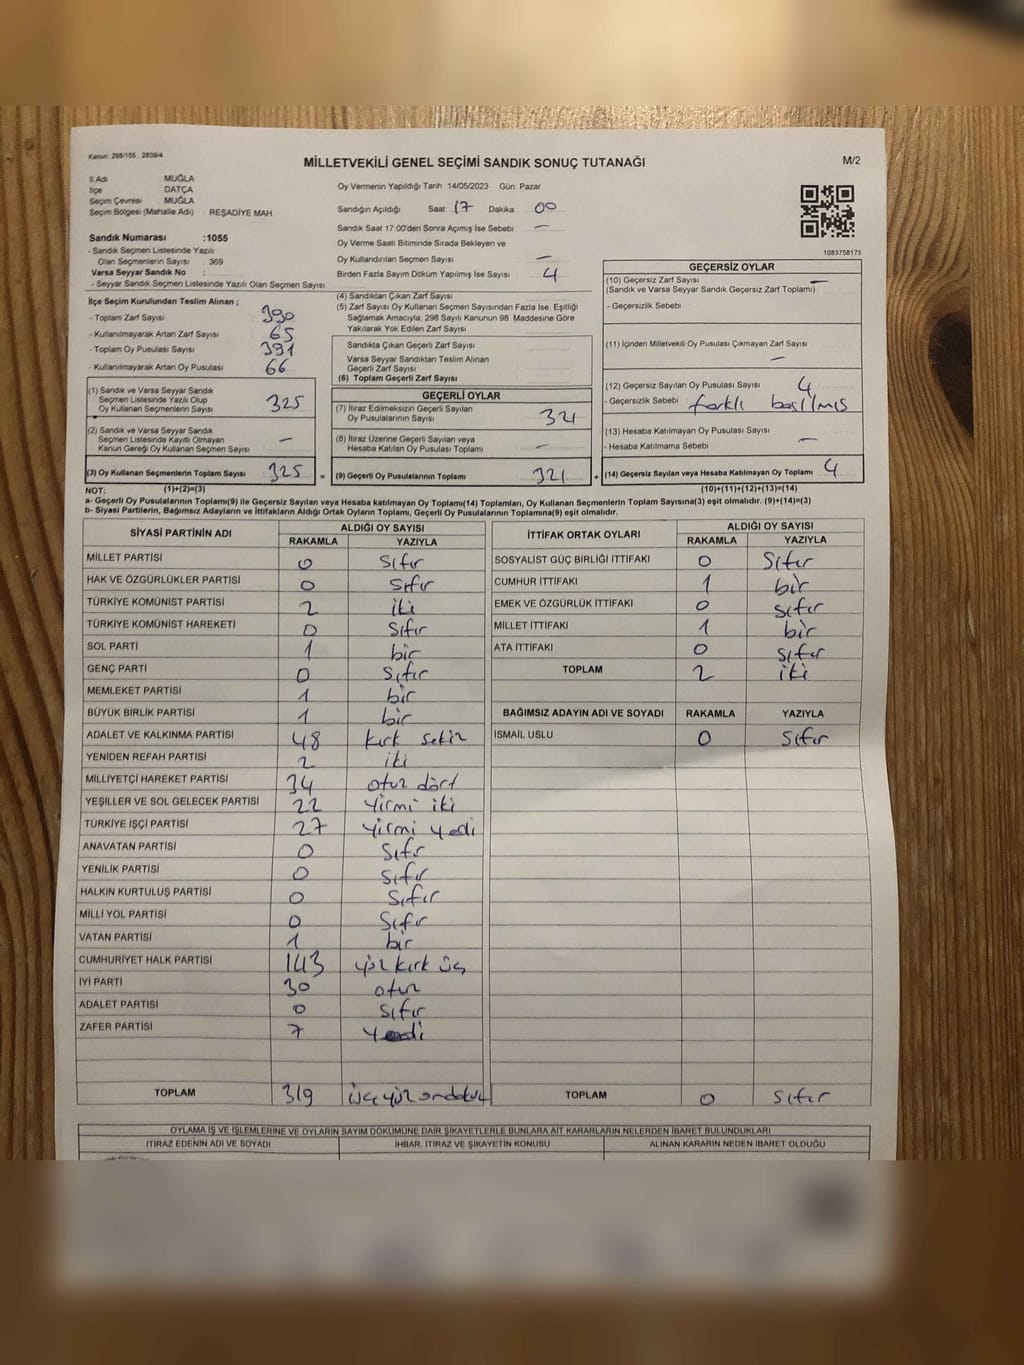 Kanun: 298/105 2839/4
MİLLETVEKİLİ GENEL SEÇİMİ SANDIK SONUÇ TUTANAĞI
M/2
İl Adı MUĞLA
İlçe DATÇA
Seçim Çevresi MUĞLA
Seçim Bölgesi (Mahalle Adı) : REŞADİYE MAH.
Oy Vermenin Yapıldığı Tarih 14/05/2023 Gün: Pazar
Sandığın Açıldığı Saat 17 Dakika 00
Sandık Saat 17:00'den Sonra Açımış İse Sebebi —
Oy Verme Saati Bitiminde Sırada Bekleyen ve
Oy Kullandırılan Seçmen Sayısı —
Birden Fazla Sayım Döküm Yapılmış İse Sayısı 4
1083758175
Sandık Numarası :1055
- Sandık Seçmen Listesinde Yazılı
Olan Seçmenlerin Sayısı : 369
Varsa Seyyar Sandık No :
- Seyyar Sandık Seçmen Listesinde Yazılı Olan Seçmen Sayısı:
İlçe Seçim Kurulundan Teslim Alınan ;
- Toplam Zarf Sayısı 390
- Kullanılmayarak Artan Zarf Sayısı 65
- Toplam Oy Pusulası Sayısı 391
- Kullanılmayarak Artan Oy Pusulası 66
(1) Sandık ve Varsa Seyyar Sandık
Seçmen Listesinde Yazılı Olup
Oy Kullanan Seçmenlerin Sayısı 325
(2) Sandık ve Varsa Seyyar Sandık
Seçmen Listesinde Kayıtlı Olmayan
Kanun Gereği Oy Kullanan Seçmen Sayısı —
(3) Oy Kullanan Seçmenlerin Toplam Sayısı 325 =
(4) Sandıktan Çıkan Zarf Sayısı
(5) Zarf Sayısı Oy Kullanan Seçmen Sayısından Fazla İse, Eşitliği
Sağlamak Amacıyla, 298 Sayılı Kanunun 98. Maddesine Göre
Yakılarak Yok Edilen Zarf Sayısı
Sandıkta Çıkan Geçerli Zarf Sayısı
Varsa Seyyar Sandıktan Teslim Alınan
Geçerli Zarf Sayısı
(6) Toplam Geçerli Zarf Sayısı
GEÇERLİ OYLAR
(7) İtiraz Edilmeksizin Geçerli Sayılan
Oy Pusulalarının Sayısı 321
(8) İtiraz Üzerine Geçerli Sayılan veya
Hesaba Katılan Oy Pusulası Toplamı —
(9) Geçerli Oy Pusulalarının Toplamı 321 +
GEÇERSİZ OYLAR
(10) Geçersiz Zarf Sayısı —
(Sandık ve Varsa Seyyar Sandık Geçersiz Zarf Toplamı)
- Geçersizlik Sebebi
(11) İçinden Milletvekili Oy Pusulası Çıkmayan Zarf Sayısı
—
(12) Geçersiz Sayılan Oy Pusulası Sayısı 4
- Geçersizlik Sebebi farklı basılmış
(13) Hesaba Katılmayan Oy Pusulası Sayısı
- Hesaba Katılmama Sebebi —
(14) Geçersiz Sayılan veya Hesaba Katılmayan Oy Toplamı 4
NOT: (1)+(2)=(3)
(10)+(11)+(12)+(13)=(14)
a- Geçerli Oy Pusulalarının Toplamı(9) ile Geçersiz Sayılan veya Hesaba katılmayan Oy Toplamı(14) Toplamları, Oy Kullanan Seçmenlerin Toplam Sayısına(3) eşit olmalıdır. (9)+(14)=(3)
b- Siyasi Partilerin, Bağımsız Adayların ve İttifakların Aldığı Ortak Oyların Toplamı, Geçerli Oy Pusulalarının Toplamına(9) eşit olmalıdır.
SİYASİ PARTİNİN ADI ALDIĞI OY SAYISI
RAKAMLA YAZIYLA
MİLLET PARTİSİ 0 sıfır
HAK VE ÖZGÜRLÜKLER PARTİSİ 0 sıfır
TÜRKİYE KOMÜNİST PARTİSİ 2 iki
TÜRKİYE KOMÜNİST HAREKETİ 0 sıfır
SOL PARTİ 1 bir
GENÇ PARTİ 0 sıfır
MEMLEKET PARTİSİ 1 bir
BÜYÜK BİRLİK PARTİSİ 1 bir
ADALET VE KALKINMA PARTİSİ 48 kırk sekiz
YENİDEN REFAH PARTİSİ 2 iki
MİLLİYETÇİ HAREKET PARTİSİ 34 otuz dört
YEŞİLLER VE SOL GELECEK PARTİSİ 22 yirmi iki
TÜRKİYE İŞÇİ PARTİSİ 27 yirmi yedi
ANAVATAN PARTİSİ 0 sıfır
YENİLİK PARTİSİ 0 sıfır
HALKIN KURTULUŞ PARTİSİ 0 sıfır
MİLLİ YOL PARTİSİ 0 sıfır
VATAN PARTİSİ 1 bir
CUMHURİYET HALK PARTİSİ 143 yüz kırk üç
İYİ PARTİ 30 otuz
ADALET PARTİSİ 0 sıfır
ZAFER PARTİSİ 7 yedi
TOPLAM 319 üç yüz ondokuz
İTTİFAK ORTAK OYLARI ALDIĞI OY SAYISI
RAKAMLA YAZIYLA
SOSYALİST GÜÇ BİRLİĞİ İTTİFAKI 0 sıfır
CUMHUR İTTİFAKI 1 bir
EMEK VE ÖZGÜRLÜK İTTİFAKI 0 sıfır
MİLLET İTTİFAKI 1 bir
ATA İTTİFAKI 0 sıfır
TOPLAM 2 iki
BAĞIMSIZ ADAYIN ADI VE SOYADI RAKAMLA YAZIYLA
İSMAİL USLU 0 sıfır
TOPLAM 0 sıfır
OYLAMA İŞ VE İŞLEMLERİNE VE OYLARIN SAYIM DÖKÜMÜNE DAİR ŞİKAYETLERLE BUNLARA AİT KARARLARIN NELERDEN İBARET BULUNDUKLARI
İTİRAZ EDENİN ADI VE SOYADI İHBAR, İTİRAZ VE ŞİKAYETİN KONUSU ALINAN KARARIN NEDEN İBARET OLDUĞU